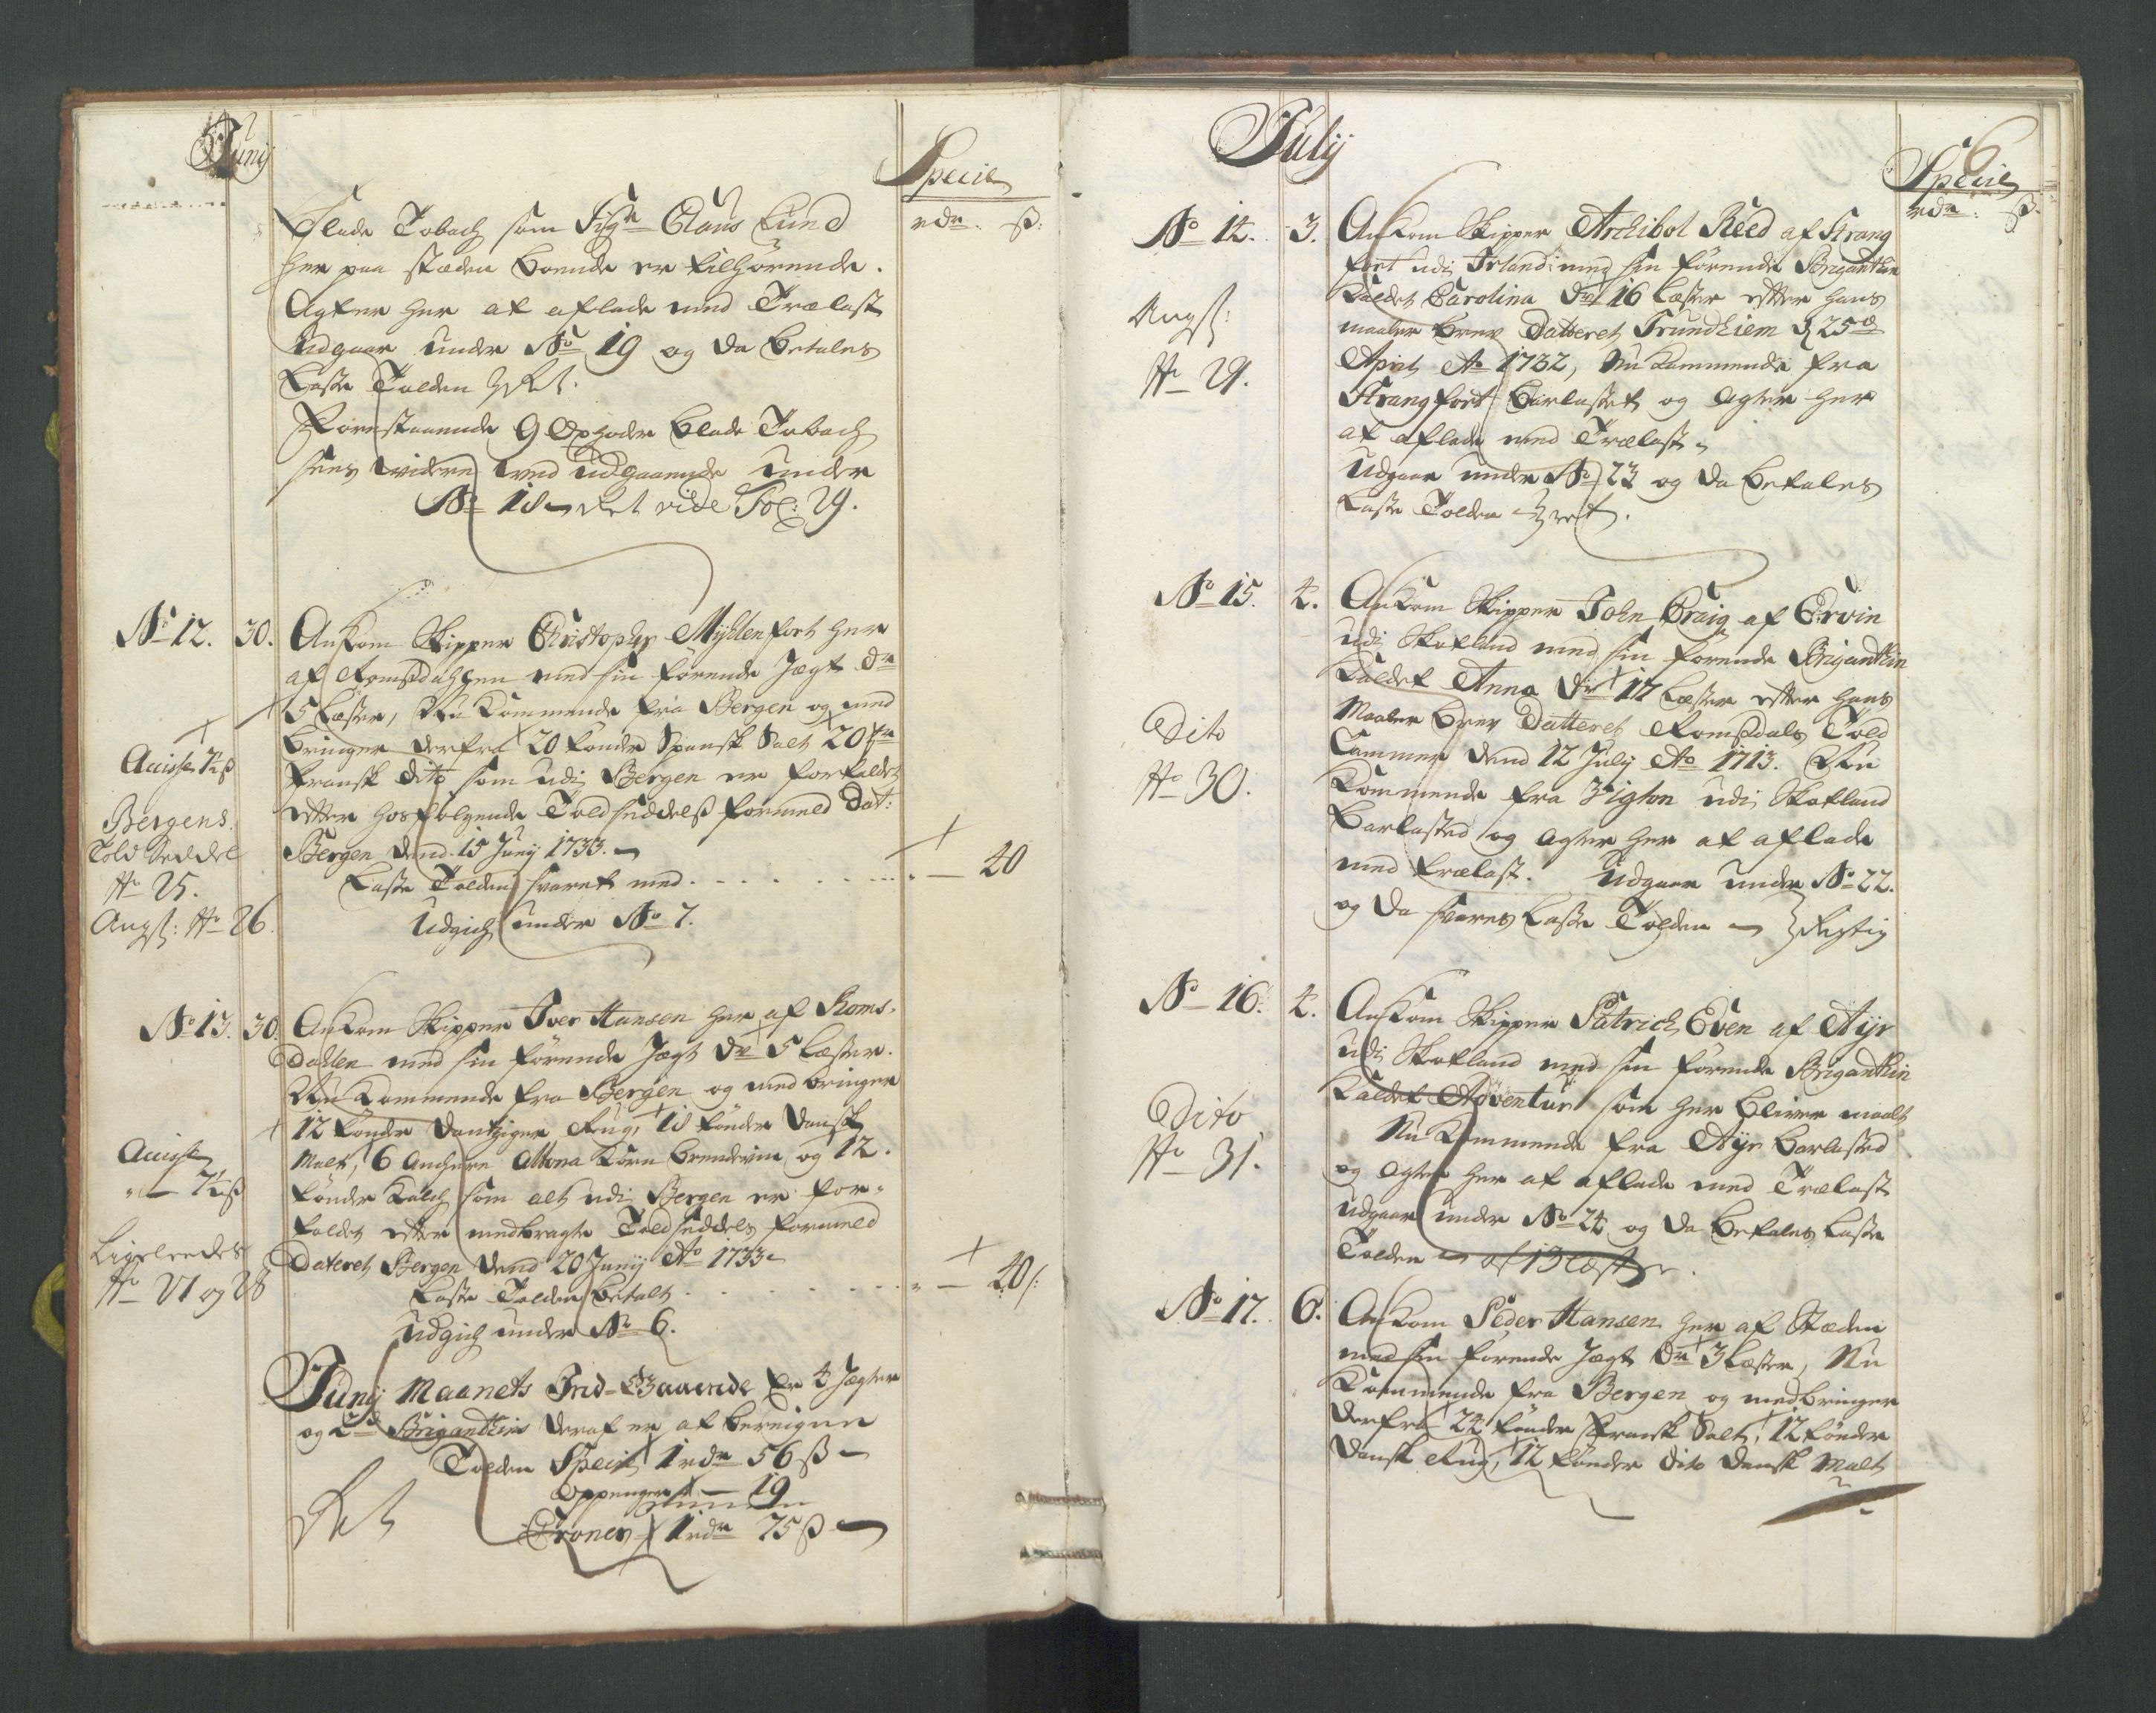 Junij
Specie
rdr. ß:
Blade Tobach som Sigr Claus Lund
her paa stæden boende er tilhörende.
Agter her at aflade med Trælast
udgaar under No 19 og da betales
Laste Tolden
Forestaaende 9 Oxhoder Blade Tobach
sees widere ved udgaaende under
No 18 vide Fol: 29.
No 12. 30. Ankom Skipper Christopher Myhlenfort her
af Romsdahlen med sin förende Jagt dr
5 Læster, Nu kommende fra Bergen og med
bringer derfra 20 tönder Spansk Salt 20 tr
fransk dito som udj Bergen er fortoldet
efter hosfölgende Toldseddels formeld Dat:
Bergen dend 15 Junij 1733.
Laste Tolden svaret med - 40
Udgich under No 7.
Accisse 7½ ß
Bergens
Told Seddel
No 25.
Angf: No 26.
No 13. 30. Ankom Skipper Iver Hansen her af Roms-
dahlen med sin förende Jagt dr 5 Læster.
Nu kommende fra Bergen og med bringer
12 tönder Dantziger Rug, 18 tönder Dansk
Malt, 6 Anchere Altona Korn brendevin og 12.
tönder Kalch som alt udj Bergen er for-
toldet efter medbragte Toldseddels formeld
Dateret Bergen dend 20 Junij Ao 1733
Laste Tolden betalt - 40/:
Udgich under No 6.
Accisse
" - 7½ ß
Ligeleedes
No 27 og 28
Junij Maanets Ind-Gaaende er 4 Jagter
og 2de Brigantiner deraf er at bereigne
Tolden Specie 1 rdr 56 ß
Oppenger - 19
Croner 1 rdr 75 ß
July
6
Specie
rdr: ß.
No 14. 3. Ankom Skipper Archibol Reed af Strang
fort udj Irland med sin förende Brigantin
kaldet Carolina dr 16 Læster efter hans
maaler brev Datteret Trundhiem d 25de
April Ao 1732, Nu kommende fra
Strangfort Barlastet og agter her
at aflade med Trælast
Udgaar under No 23 og da betales
Laste Tolden
Angf:
No 29.
No 15. 4. Ankom Skipper John Craig af Ervin
udj Skotland med sin förende Brigantin
kaldet Anna dr 17 Læster efter hans
Maaler brev Datteret Romsdals Told
Cammer dend 12 July Ao 1713. Nu
kommende fra Vigton udj Skotland
Barlasted og agter her at aflade
med trælast. Udgaar under No 22.
og da svares Laste Tolden
Dito
No 30.
No 16. 4. Ankom Skipper Patrich Even af Aijr
udj Skotland med sin förende Brigantin
kaldet Adventur som her bliver maalt
Nu kommende fra Aijr barlasted
og agter her at aflade med Trælast
udgaar under No 24 og da betales Laste
Tolden af 13 Læster.
Dito
No 31.
No 17. 6. Ankom Peder Hansen her af Stæden
med sin förende Jagt dr 3 Læster, Nu
kommende fra Bergen og medbringer
derfra 24 tönder Fransk Salt, 12 tönder
Dansk Rug, 12 tönder dito Dansk Malt